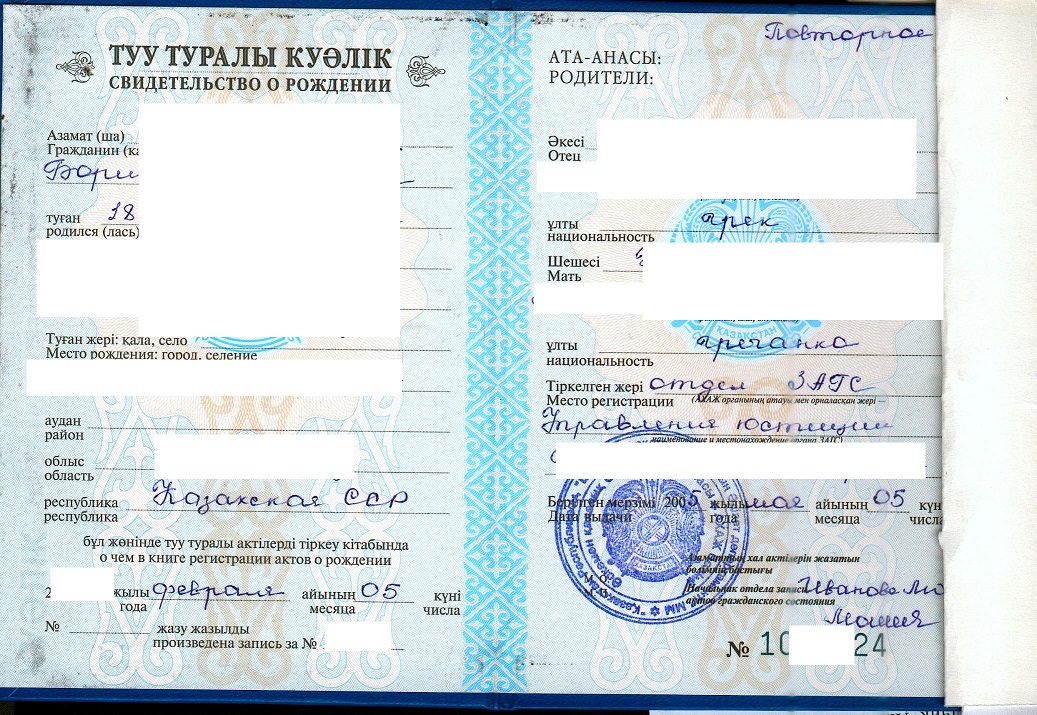 ТУУ ТУРАЛЫ КУӘЛІК
СВИДЕТЕЛЬСТВО О РОЖДЕНИИ
Азамат (ша)
Гражданин (ка
Бори
туған 18
родился (лась)
Туған жері: қала, село
Место рождения: город, селение
аудан
район
облыс
область
республика Казахская ССР
республика
бұл жөнінде туу туралы актілерді тіркеу кітабында
о чем в книге регистрации актов о рождении
2 жылы февраля айының 05 күні
года месяца числа
№ жазу жазылды
произведена запись за №
Повторное
АТА-АНАСЫ:
РОДИТЕЛИ:
Әкесі
Отец
ұлты грек
национальность
Шешесі
Мать
ҚАЗАҚСТАН
ұлты гречанка
национальность
Тіркелген жері отдел ЗАГС
Место регистрации (АХАЖ органының атауы мен орналасқан жері –
Управления юстиции
наименование и местонахождение органа ЗАГС)
Берілген мерзімі 2005 жылы мая айының 05 күн
Дата выдачи года месяца числа
Азаматтық хал актілерін жазатын
бөлімнің бастығы
М.О.
Начальник отдела записи Иванова
актов гражданского состояния
№ 10 24